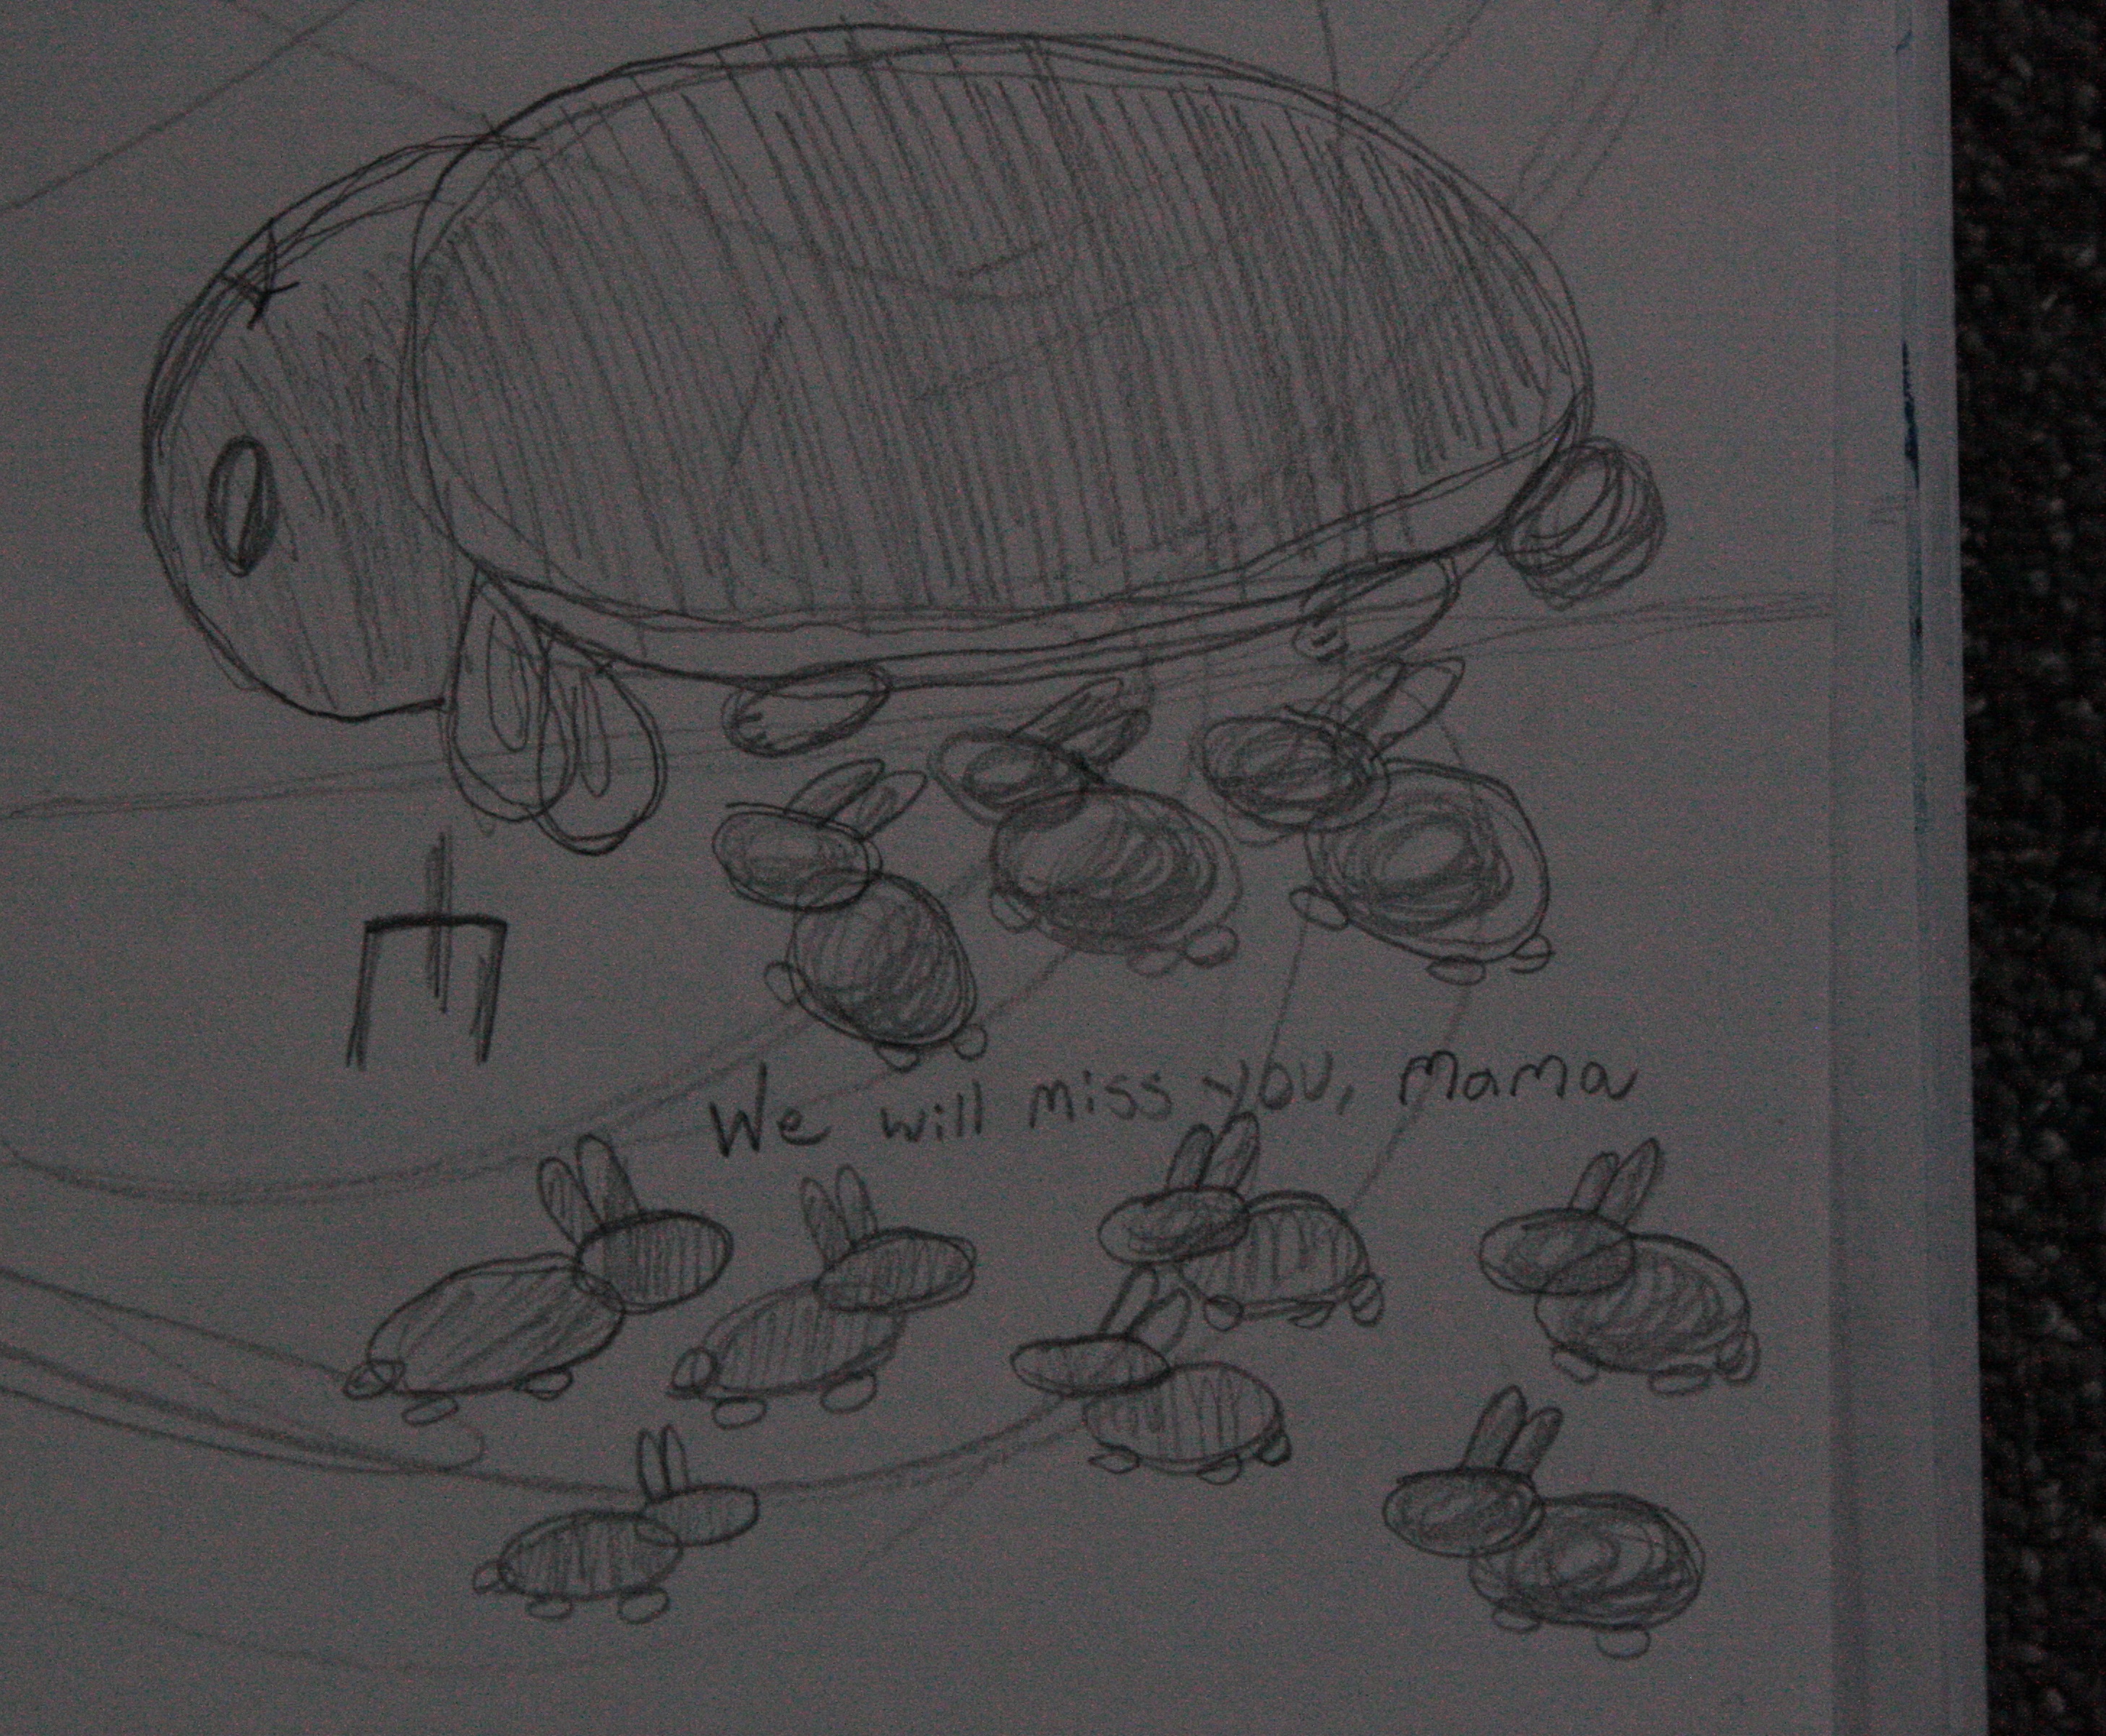 We will miss you, mama